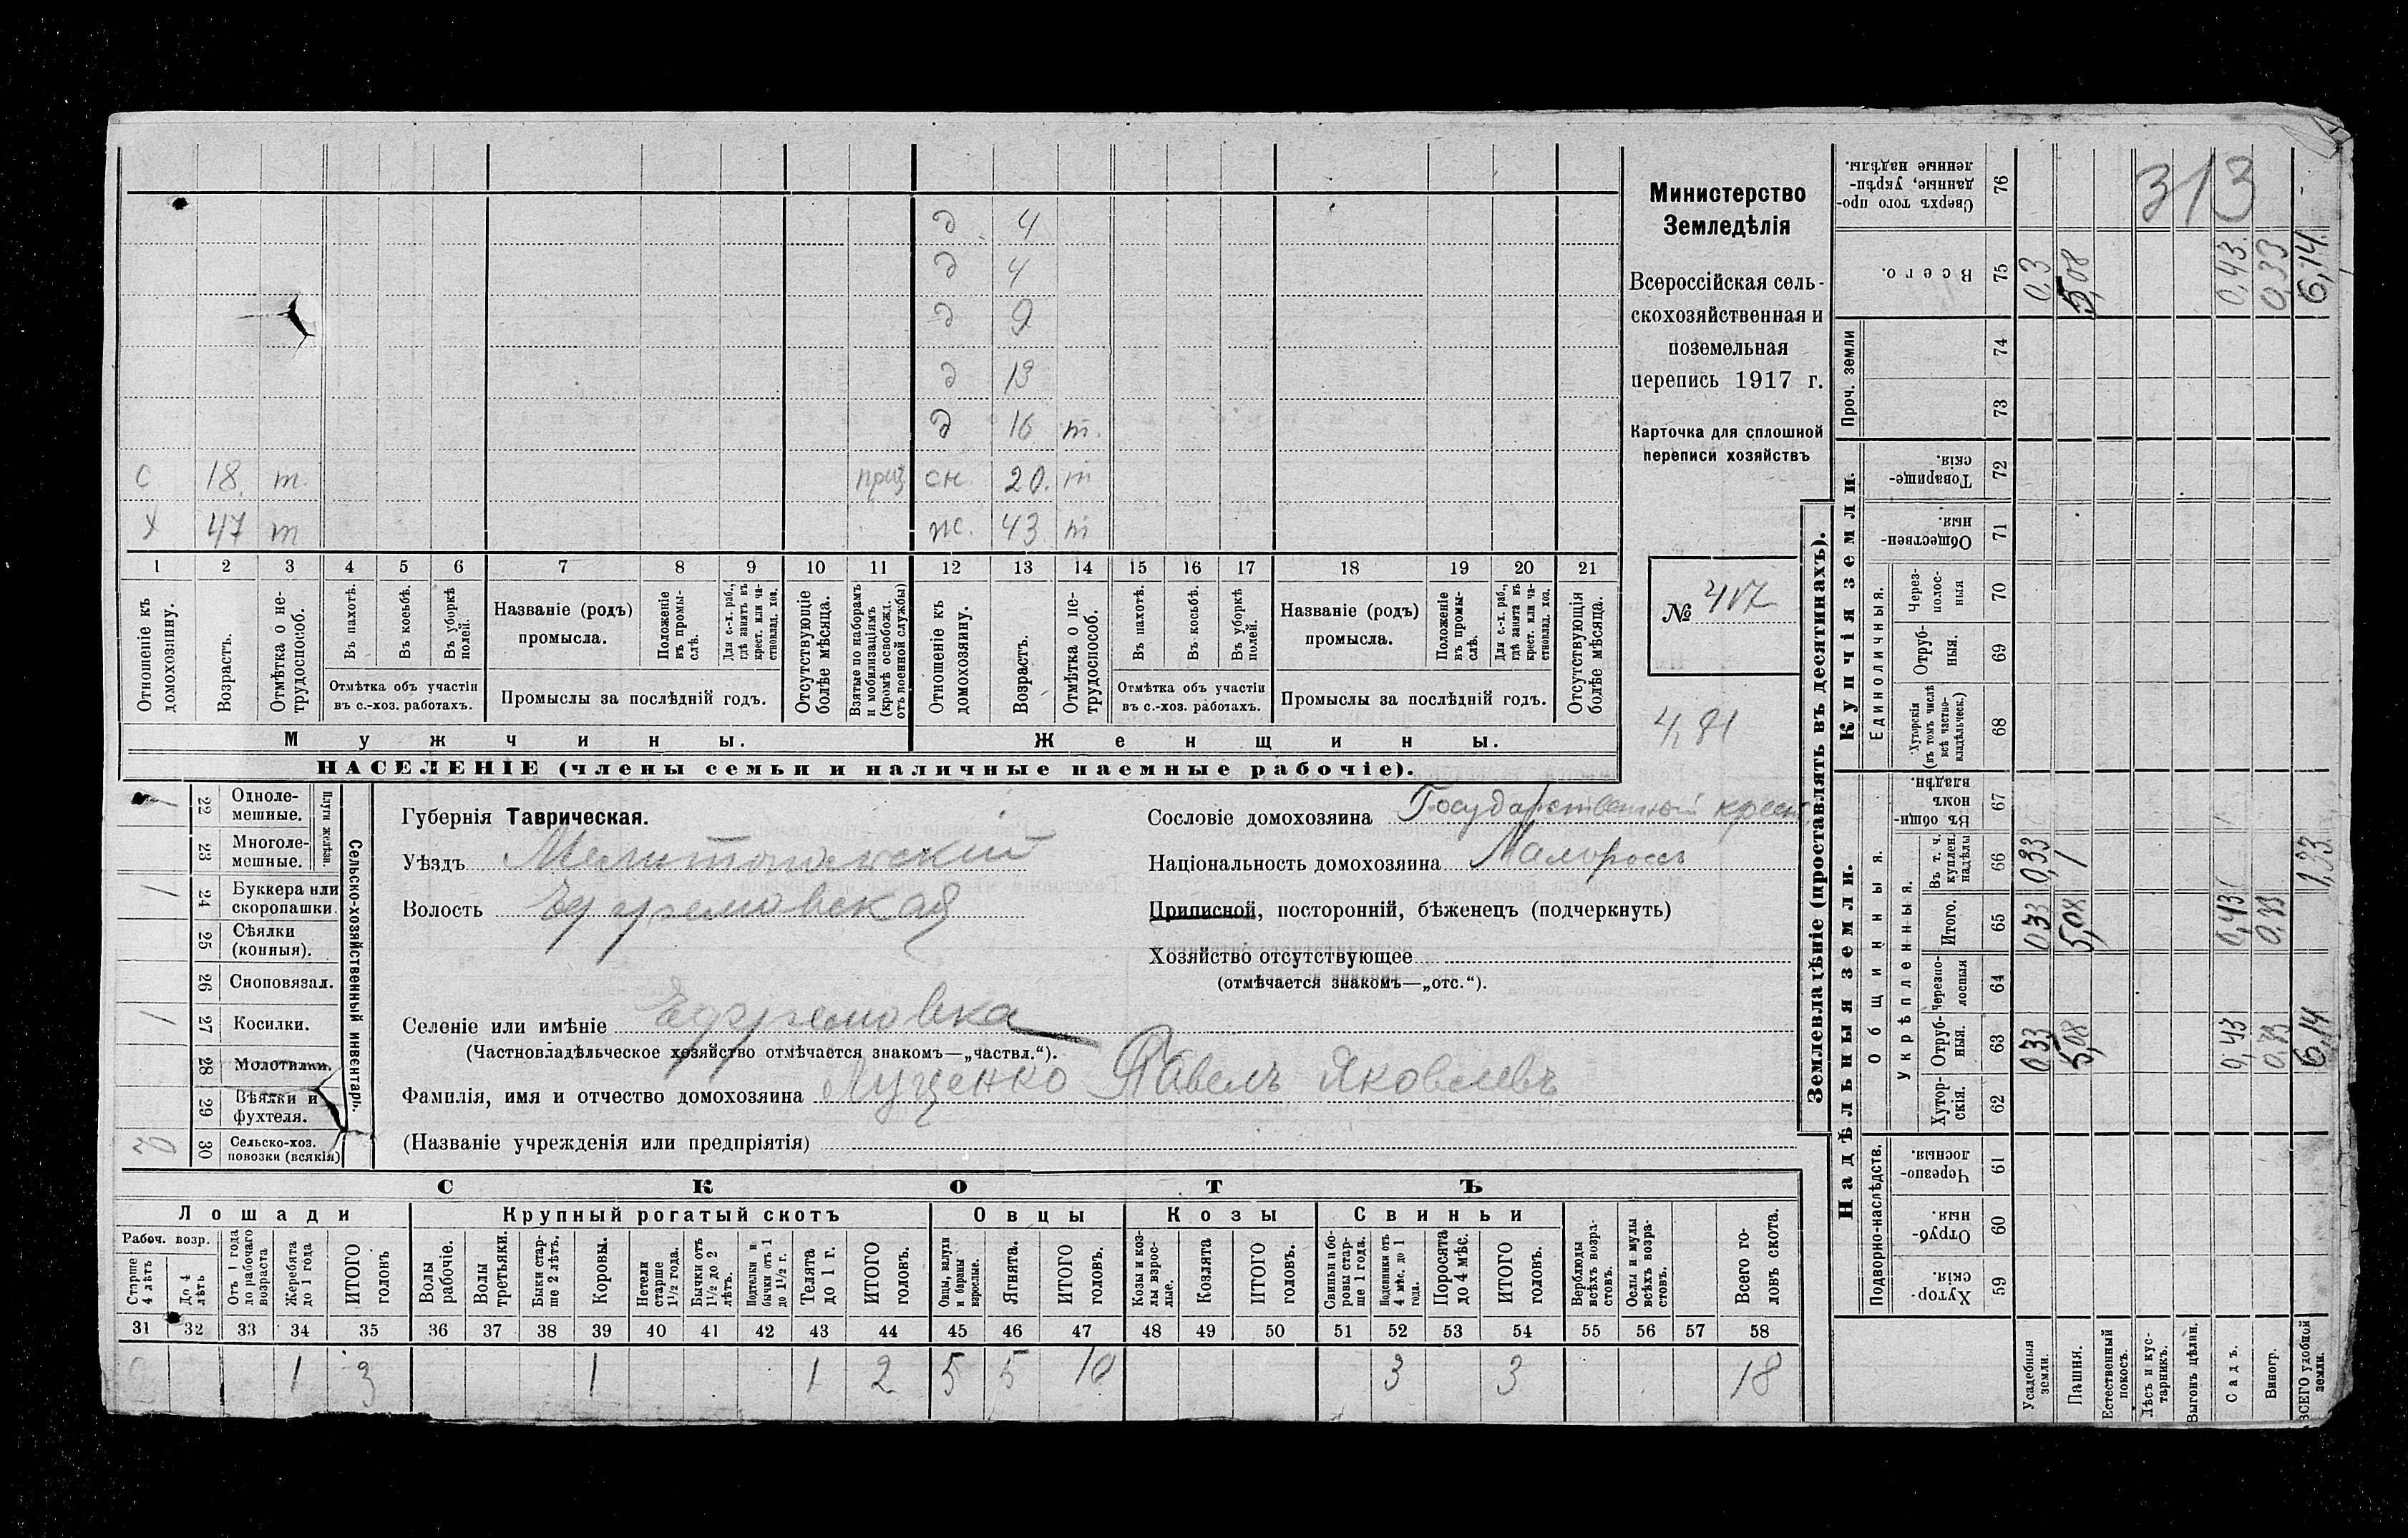 д 4
д 4
д 9
д 13
д 16 т.
с 18. т. приз сн. 20. т
х 47 т ж. 43 т
1 2 3 4 5 6 7 8 9 10 11 12 13 14 15 16 17 18 19 20 21
Отношеніе къ домохозяину.
Возрастъ.
Отмѣтка о не-трудоспособ.
Въ пахотѣ.
Въ косьбѣ.
Въ уборкѣ полей.
Отмѣтка объ участіи въ с.-хоз. работахъ.
Названіе (родъ) промысла.
Положеніе въ промы-слѣ.
Для с.-х. раб., гдѣ занятъ въ крест. или ча-стновлад. хоз.
Промыслы за послѣдній годъ.
Отсутствующіе болѣе мѣсяца.
Взятые по наборамъ и мобилизаціямъ (кромѣ освобожд. отъ военной службы)
Отношеніе къ домохозяину.
Возрастъ.
Отмѣтка о не-трудоспособ.
Въ пахотѣ.
Въ косьбѣ.
Въ уборкѣ полей.
Отмѣтка объ участіи въ с.-хоз. работахъ.
Названіе (родъ) промысла.
Положеніе въ промы-слѣ.
Для с.-х. раб., гдѣ занята въ крест. или ча-стновлад. хоз.
Промыслы за послѣдній годъ.
Отсутствующія болѣе мѣсяца.
Мужчины.
Женщины.
НАСЕЛЕНІЕ (члены семьи и наличные наемные рабочіе).
Министерство
Земледѣлія
Всероссійская сель-
скохозяйственная и
поземельная
перепись 1917 г.
Карточка для сплошной
переписи хозяйствъ
№ 417
481
22 Одноле-мешные. 1
23 Многоле-мешные.
Плуги желѣзн.
24 Буккера или скоропашки. 1
25 Сѣялки (конныя).
26 Сноповязал.
27 Косилки. 1
28 Молотилки.
29 Вѣялки и фухтеля.
30 Сельско-хоз. повозки (всякія)
Сельско-хозяйственный инвентарь.
Губернія Таврическая.
Уѣздъ Мелитопольскій
Волость Ефремовская
Селеніе или имѣніе Ефремовка
(Частновладѣльческое хозяйство отмѣчается знакомъ—„частвл.“).
Фамилія, имя и отчество домохозяина Луценко Павелъ Яковлевъ
(Названіе учрежденія или предпріятія)
Сословіе домохозяина Государственный крест
Національность домохозяина Малороссъ
Приписной, посторонній, бѣженецъ (подчеркнуть)
Хозяйство отсутствующее
(отмѣчается знакомъ—„отс.“).
СКОТЪ
Лошади
Крупный рогатый скотъ
Овцы
Козы
Свиньи
Рабоч. возр.
Старше 4 лѣтъ
До 4 лѣтъ
Отъ 1 года до рабочаго возраста
Жеребята до 1 года
ИТОГО головъ
Волы рабочіе.
Волы третьяки.
Быки стар-ше 2 лѣтъ.
Коровы.
Нетели старше 1½ года.
Бычки отъ 1½ до 2 лѣтъ.
Подтелки и бычки отъ 1 до 1½ г.
Телята до 1 г.
ИТОГО головъ.
Овцы, валухи и бараны взрослые.
Ягнята.
ИТОГО головъ.
Козы и коз-лы взрос-лые.
Козлята
ИТОГО головъ.
Свиньи и бо-ровы стар-ше 1 года.
Подсвинки отъ 4 мѣс. до 1 года.
Поросята до 4 мѣс.
ИТОГО головъ.
Верблюды всѣхъ возра-стовъ.
Ослы и мулы всѣхъ возра-стовъ.
Всего го-ловъ скота.
31 32 33 34 35 36 37 38 39 40 41 42 43 44 45 46 47 48 49 50 51 52 53 54 55 56 57 58
1 3 1 1 2 5 5 10 3 3 18
Землевладѣніе (проставлять въ десятинахъ).
Надѣльныя земли.
Купчія земли.
Проч. земли
Подворно-наслѣдств.
Общинныя.
Укрѣпленныя.
Единоличныя.
Хутор-скія. 59
Отруб-ныя. 60
Черезпо-лосныя. 61
Хутор-скія. 62
Отруб-ныя. 63
Черезпо-лосныя 64
Итого. 65
Въ т. ч. куплен. надѣлы 66
Въ общи-номъ владѣн. 67
Хуторскія (въ томъ числѣ всѣ частно-владѣльческ.) 68
Отруб-ныя. 69
Через-полос-ныя 70
Обществен-ныя. 71
Товарище-скія. 72
73
74
Всего. 75
Сверхъ того про-данные, укрѣп-ленные надѣлы. 76
Усадебныя земли. 0,33 0,33 0,33 0,3
Пашня. 5,08 5,08 1 5,08
Естественный покосъ.
Лѣсъ и кус-тарникъ.
Выгонъ цѣлин.
Садъ. 0,43 0,43 0,43
Виногр. 0,33 0,33 0,33
ВСЕГО удобной земли. 6,14 1,33 6,14
313